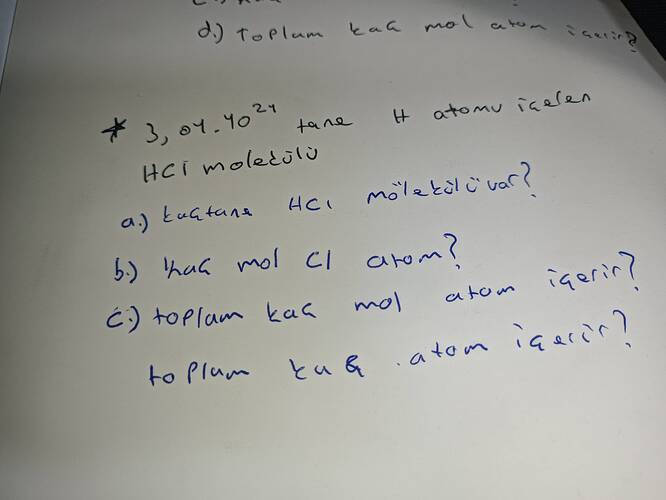 d.) toplam kaç mol atom içerir?
* 3,01.10²⁴ tane H atomu içeren
HCl molekülü
a.) kaçtane HCl mölekülü var?
b.) kaç mol Cl atom?
c.) toplam kaç mol atom içerir?
toplam kaç atom içerir?